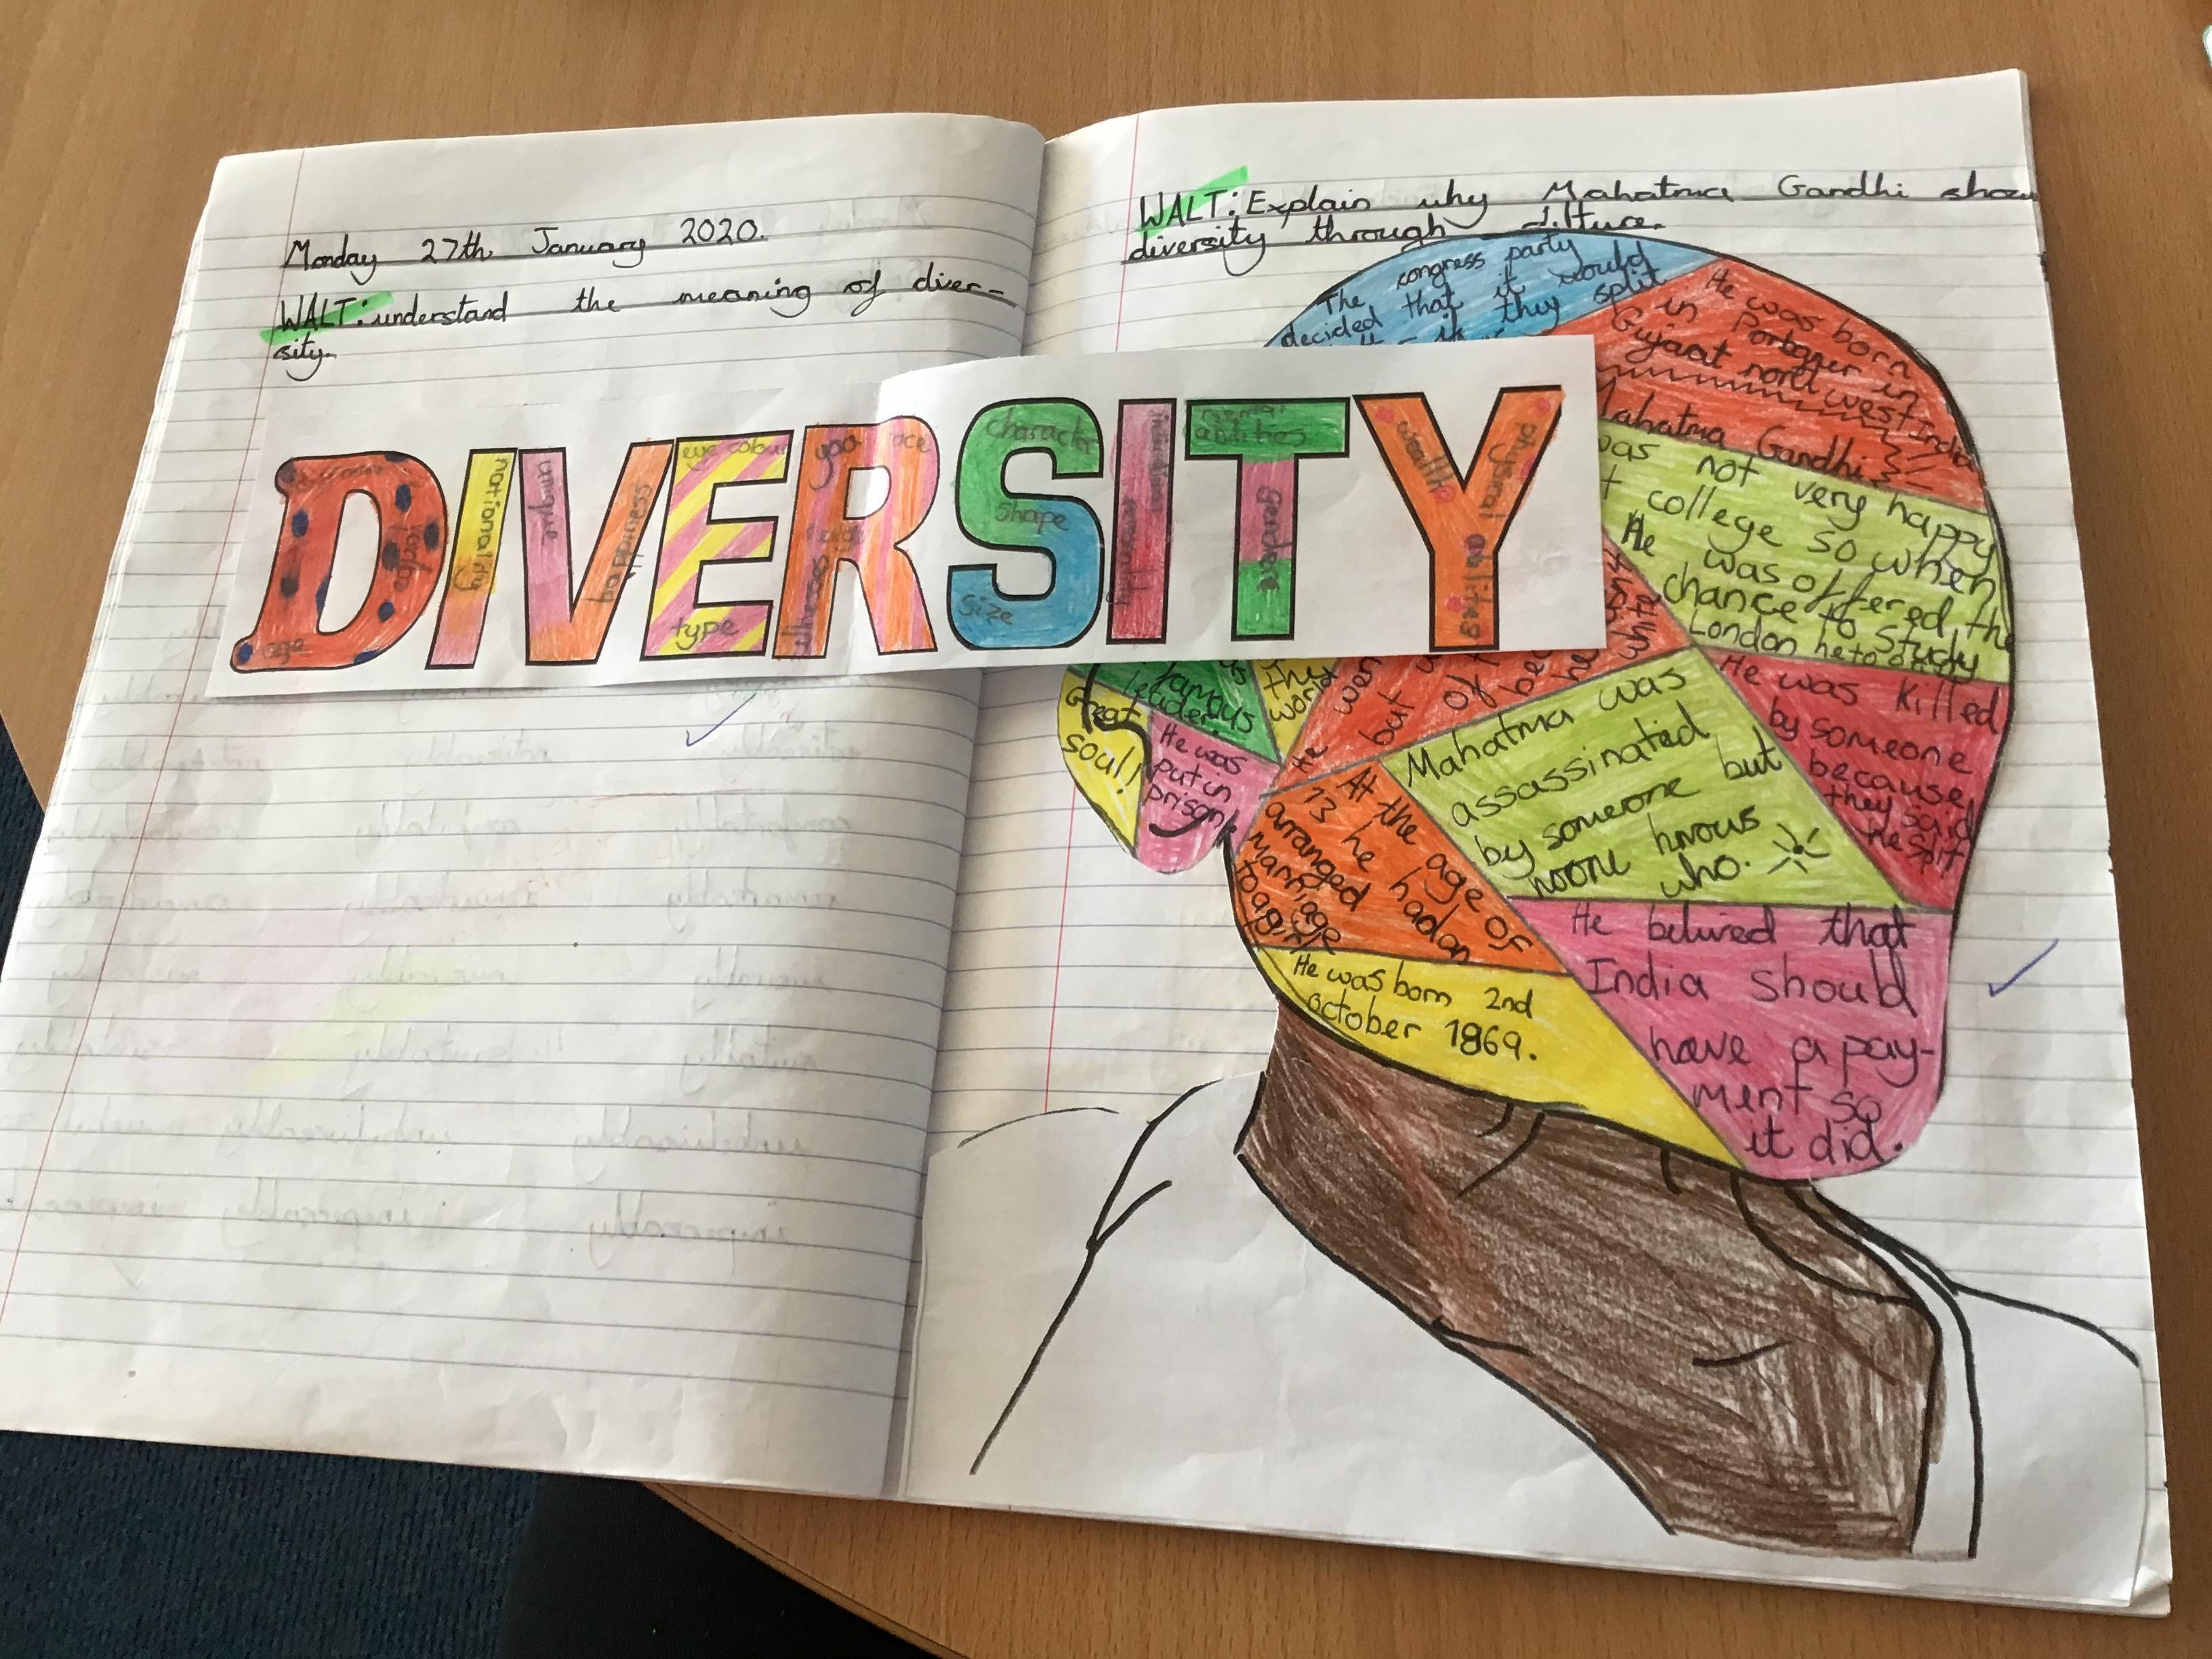 Monday 27th January 2020.
WALT: understand the meaning of diver-
sity.
DIVERSITY
age
nationality
unique
happiness
eye colour
type
race
character
shape
size
mental
abilities
gendere
wealth
physical abilities
WALT: Explain why Mahatma Gandhi show
diversity through
The congress party
decided that it would
they split
He was born
in Porbaner in
Gujaat north west India
Mahatma Gandhi
was not very happy
t college so when
He was offered the
chance to study
London he
He was killed
by someone
because
they said
he split
famous
leader
Great
soul!
the
world
He was
put in
prison
He
but
of
white
Mahatma was
assassinated
by someone but
noone knows
who.
At the age of
13 he had an
arranged
marriage
to a girl
He was born 2nd
october 1869.
He belived that
India should
have a pay-
ment so
it did.